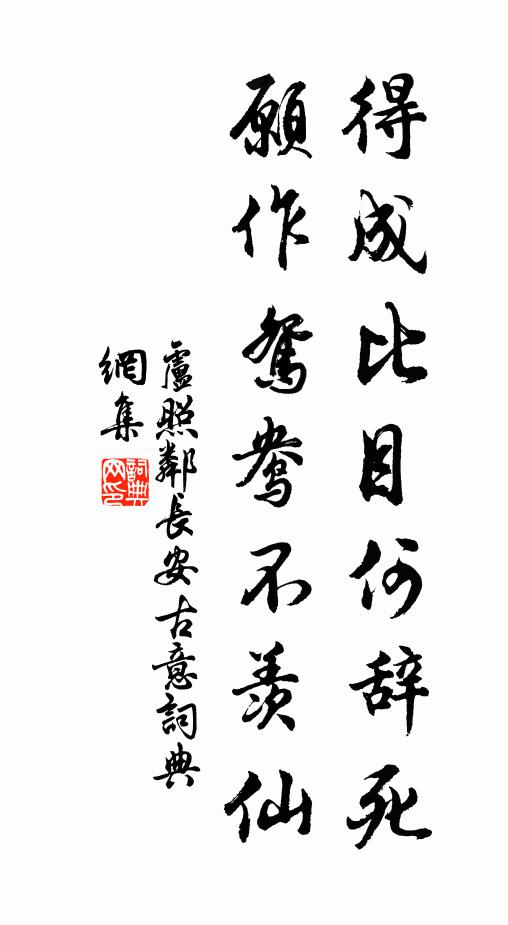 得成比目何辞死
願作鴛鴦不羨仙
盧照鄰長安古意詞典
網集
詞典
网印